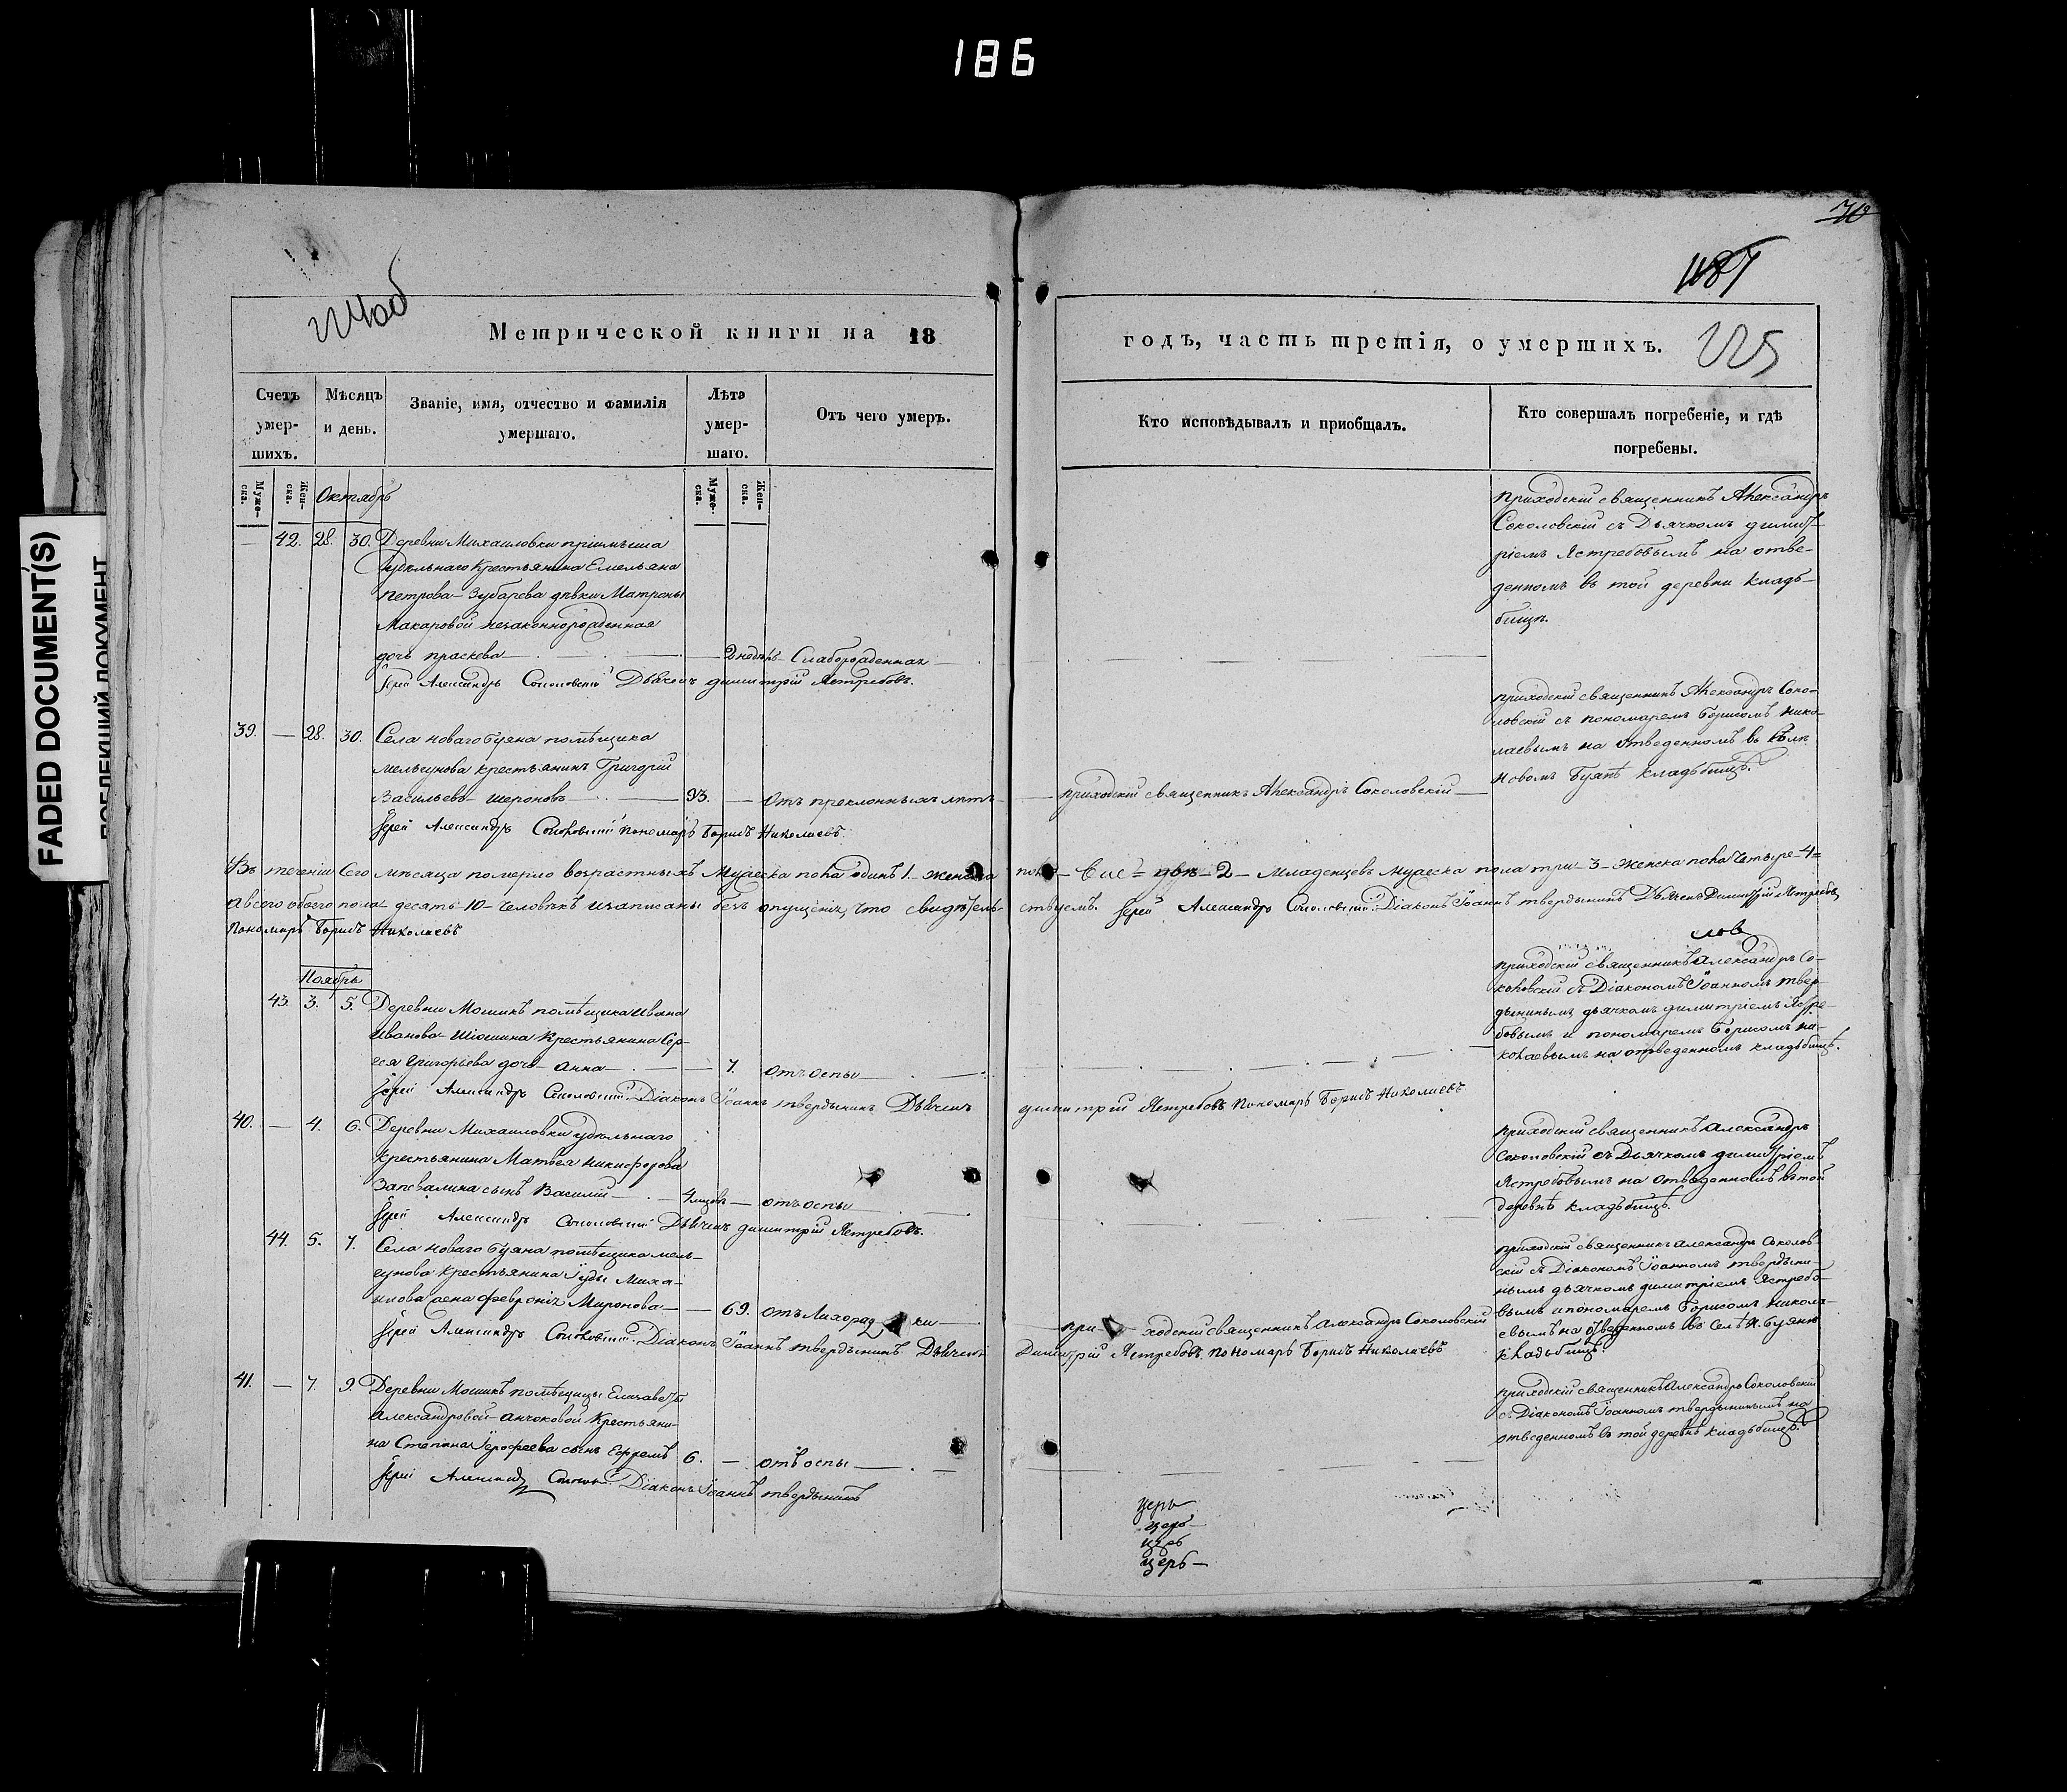 186
70
187
225
FADED DOCUMENT(S)
Метрической книги на 18
годъ, часть третія, о умершихъ.
Счетъ умер-шихъ.
Мѣсяцъ и день.
Званіе, имя, отчество и фамилія умершаго.
Лѣта умер-шаго.
Отъ чего умеръ.
Кто исповѣдывалъ и приобщалъ.
Кто совершалъ погребеніе, и гдѣ погребены.
Муже-ска.
Жен-ска.
Муже-ска.
Жен-ска.
Октябрь
— 42. 28. 30. Деревни Михаиловки
удѣльнаго крестьянина Емельяна
Петрова Зубарева дѣвки Матроны
Макаровой незаконнорожденная
дочь Праскева — 2 недѣль Слаборожденная
Іерей Александръ Соколовскій Дьячекъ Димитрій Ястребовъ.
Приходскій священникъ Александръ
Соколовскій съ Дьячкомъ Димит-
ріемъ Ястребовымъ на отве-
денномъ въ той деревни кладъ-
бищѣ.
39. — 28. 30. Села Новаго Буяна помѣщика
Мельгунова крестьянинъ Григорій
Васильевъ Шероновъ — 93. — Отъ преклонныхъ лѣтъ
Іерей Александръ Соколовскій Пономарь Борисъ Николаевъ
приходскій священникъ Александръ Соколовскій
приходскій священникъ Александръ Соко-
ловскій съ пономаремъ Борисомъ Нико-
лаевымъ на отведенномъ въ селѣ
Новомъ Буянѣ кладъбищѣ.
Въ теченіи сего мѣсяца померло возрастныхъ мужеска пола одинъ 1. женска пола двѣ 2 — Младенцевъ мужеска пола три 3 — женска пола четыре 4 =
а всего обоего пола десять 10 человѣкъ и записаны безъ опущенія, что свидѣтель-ствуемъ. Іерей Александръ Соколовскій Діаконъ Іоаннъ Твердынинъ Дьячекъ Димитрій Ястребовъ
Пономарь Борисъ Николаевъ
Ноябрь
43. 3. 5. Деревни Мошикъ помѣщика Ивана
Иванова крестьянина Сер-
гея Григорьева дочь Анна — 7. отъ оспы
Іерей Александръ Соколовскій Діаконъ Іоаннъ Твердынинъ Дьячекъ Димитрій Ястребовъ Пономарь Борисъ Николаевъ
приходскій священникъ Александръ Со-
коловскій съ Діакономъ Іоанномъ Твер-
дынинымъ дьячкомъ Димитріемъ Ястре-
бовымъ и пономаремъ Борисомъ Ни-
колаевымъ на отведенномъ кладъбищѣ.
40. — 4. 6. Деревни Михаиловки удѣльнаго
крестьянина Матвея Никифорова
Запевалина сынъ Василій — отъ оспы
Іерей Александръ Соколовскій Дьячекъ Димитрій Ястребовъ.
приходскій священникъ Александръ
Соколовскій съ Дьячкомъ Димитріемъ
Ястребовымъ на отведенномъ въ той
деревнѣ кладъбищѣ.
44. 5. 7. Села Новаго Буяна помѣщика Мель-
гунова крестьянина Іуды Миха-
илова жена Февронія Миронова — 69. отъ Лихорадки
Іерей Александръ Соколовскій Діаконъ Іоаннъ Твердынинъ Дьячекъ Димитрій Ястребовъ, Пономарь Борисъ Николаевъ
приходскій священникъ Александръ Соколовскій
приходскій священникъ Александръ Соколов-
скій съ Діакономъ Іоанномъ Твердыни-
нымъ дьячкомъ Димитріемъ Ястребо-
вымъ и пономаремъ Борисомъ Никола-
евымъ на отведенномъ въ селѣ Н. Буянѣ
кладъбищѣ.
41. — 7. 9. Деревни Мошикъ помѣщицы Елизаветы
Александровой крестьяни-
на Степана Іерофеева сынъ Ефремъ 6. — отъ оспы
Іерей Александръ Діаконъ Іоаннъ Твердынинъ
приходскій священникъ Александръ Соколовскій
съ Діакономъ Іоанномъ Твердынинымъ на
отведенномъ въ той деревнѣ кладъбищѣ.
церь
церь
церь
церь